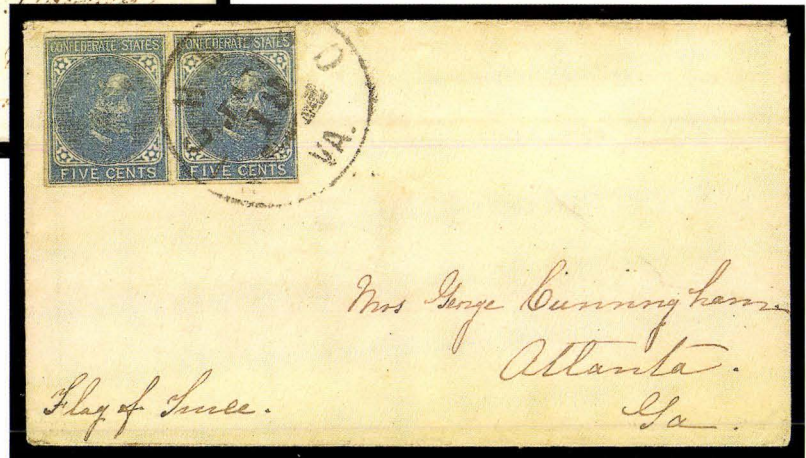 CONFEDERATE STATES CONFEDERATE STATES
FIVE CENTS FIVE CENTS
VA.
Mrs George Cunningham
Atlanta.
Ga.
Flag of Truce.